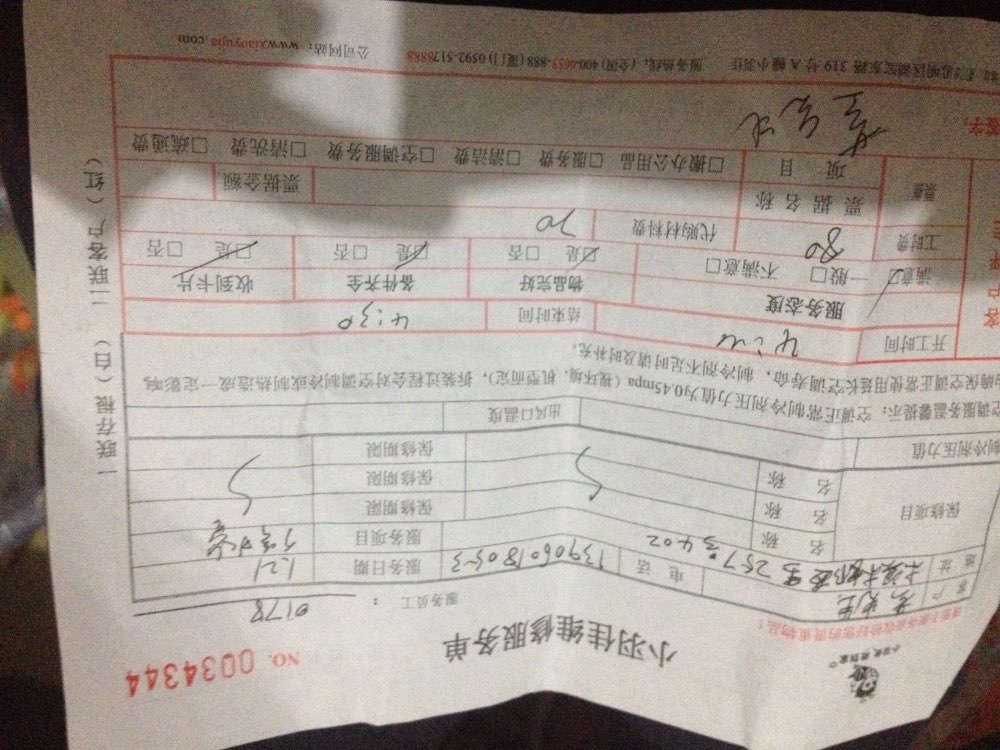 小羽佳 做到家
小羽佳维修服务单
NO. 0034344
服务员工： 0178
客户
电话 13906018053
服务日期 1.21
地址 257号402
服务项目
保修项目
名称 保修期限
名称 保修期限
名称 保修期限
制冷剂压力值 出风口温度
调服务温馨提示：空调正常制冷剂压力值为0.45mpa（视环境，机型而定），拆装过程会对空调制冷或制热造成一定影响，
确保空调正常使用延长空调寿命，制冷剂不足请及时补充。
开工时间 结束时间 4:30
服务态度 物品完好 备件齐全 收到卡片
满意□ 一般□ 不满意□ 是□ 否□ 是□ 否□ 是□ 否□
工时费 80 代购材料费 70
票据 票据名称 票据金额
项目 □搬办公用品 □服务费 □清洁费 □空调服务费 □清洗费 □疏通费
签字：
319 号 A 幢小羽佳 服务热线：(全国) 400-6655-888 (厦门) 0592-5178888 公司网站：www.xiaoyujia.com
一联存根（白） 二联客户（红）